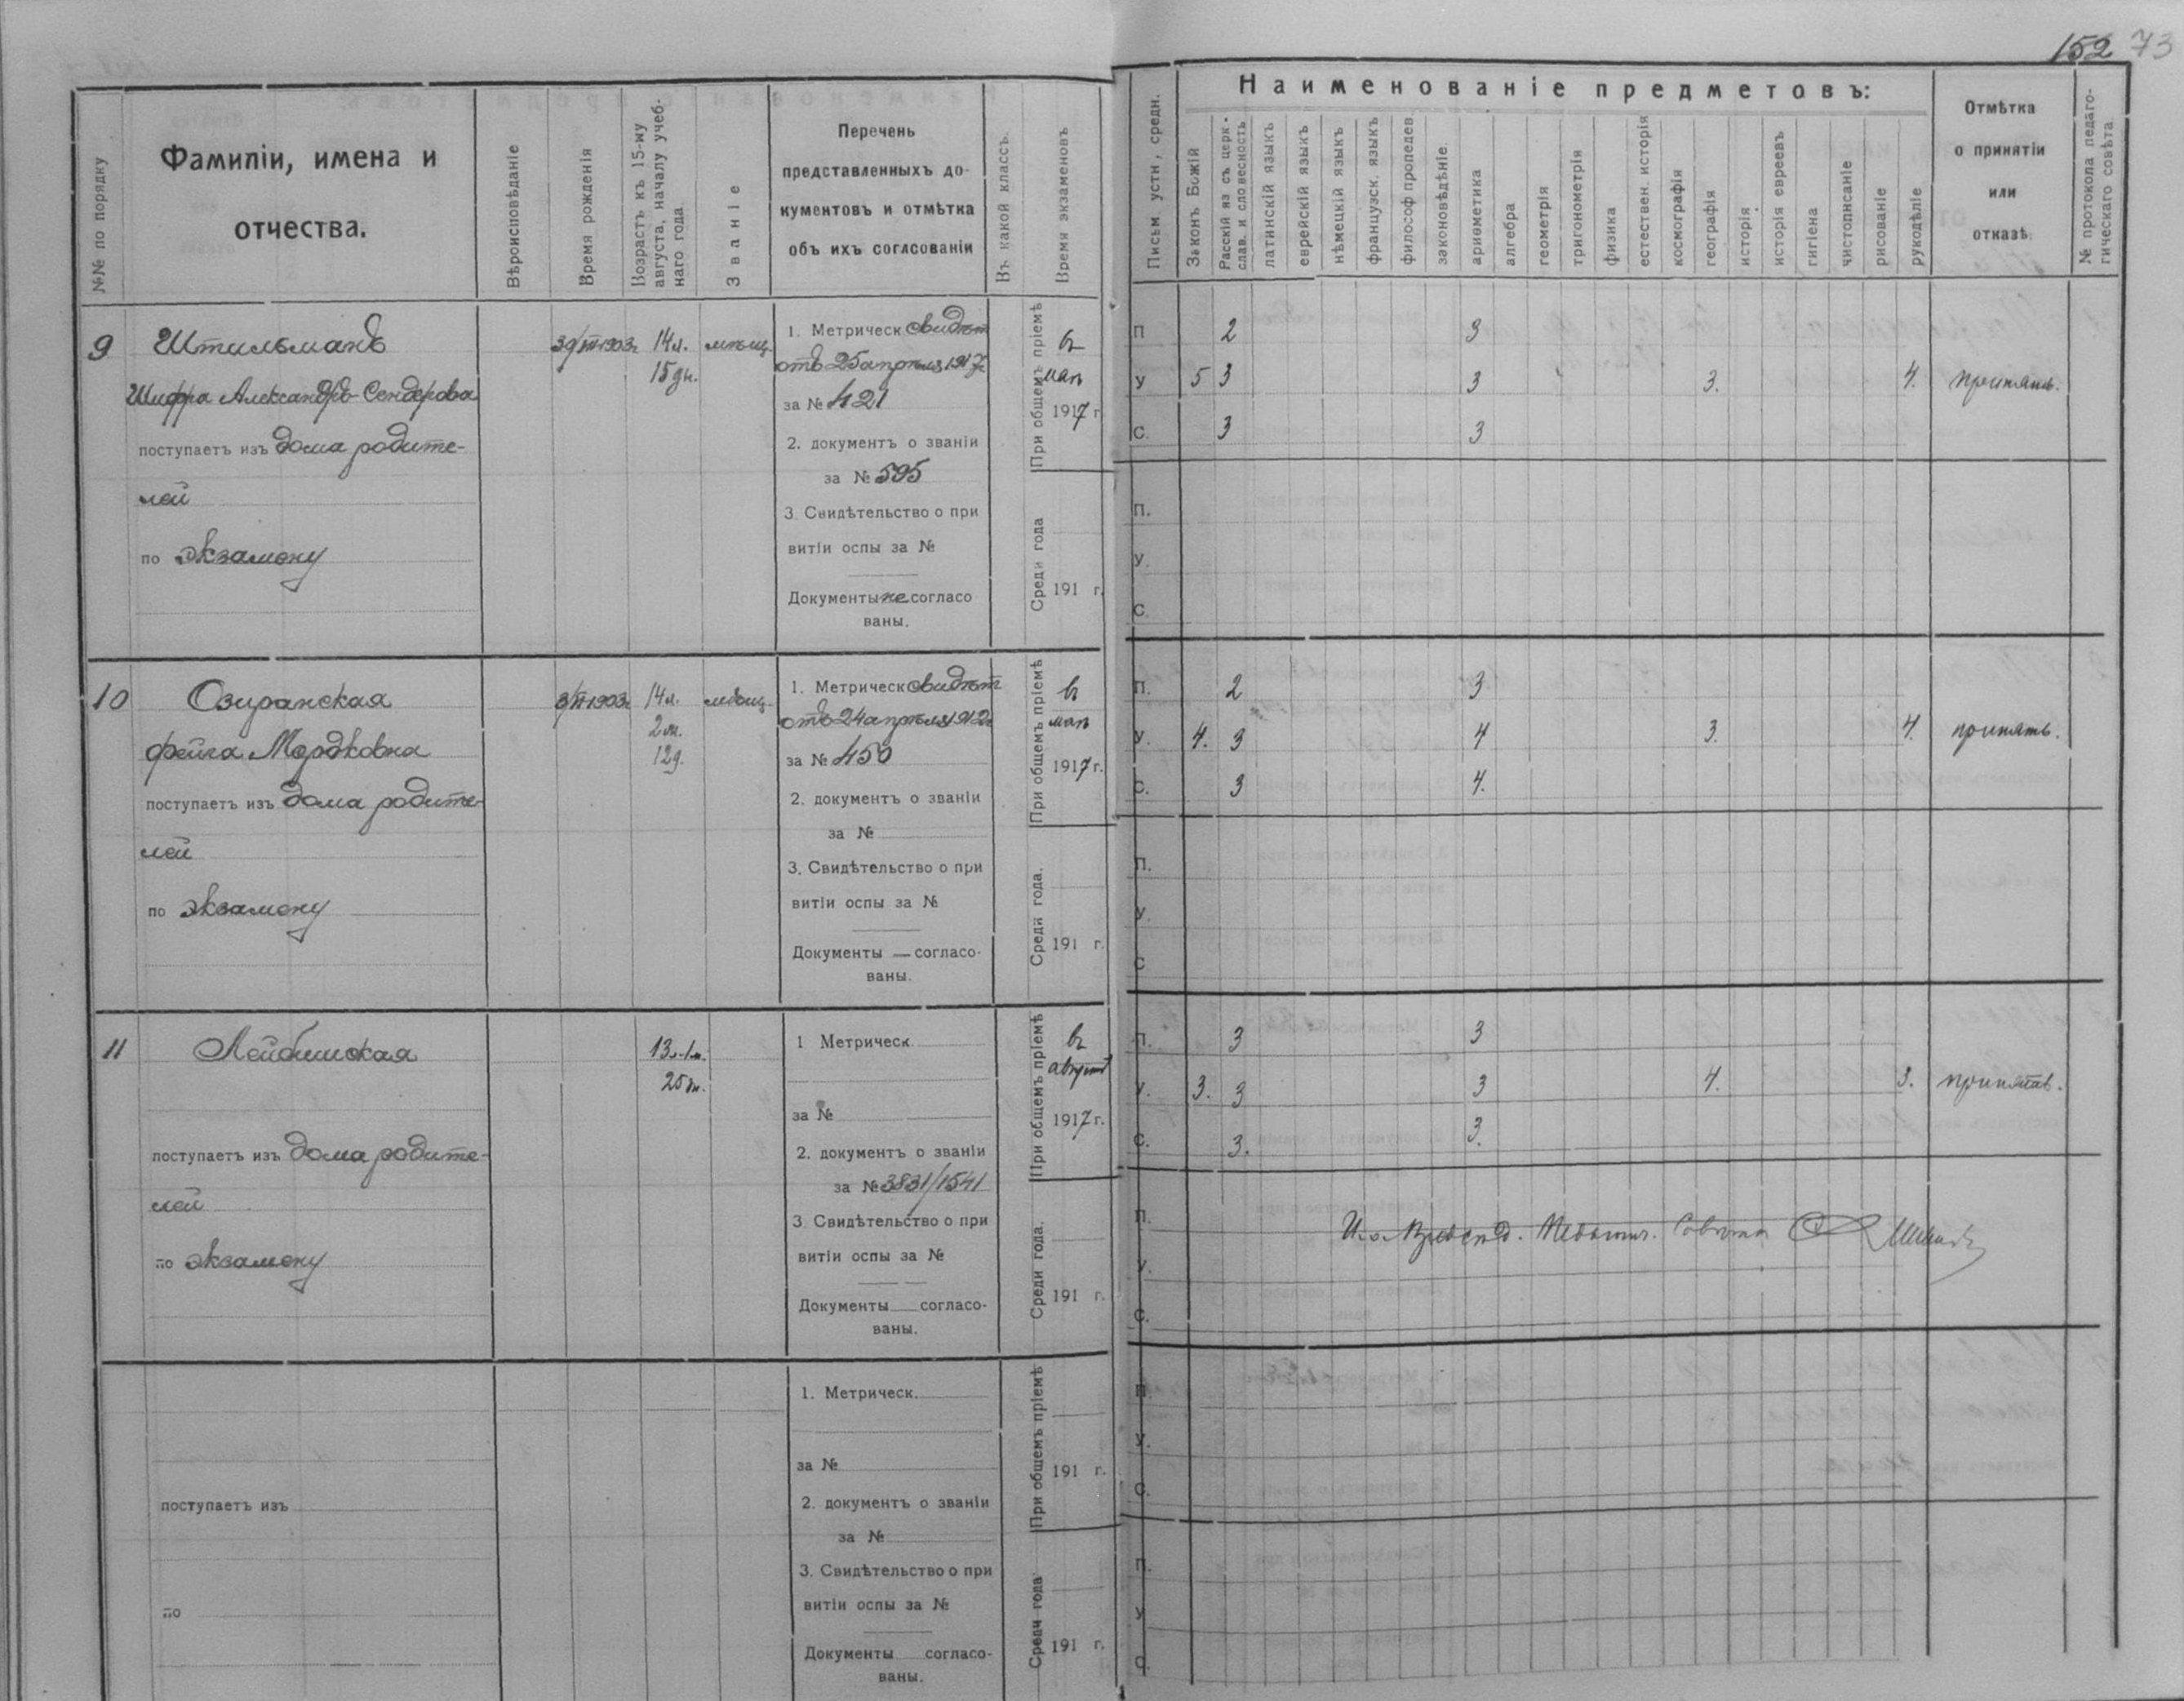 152 73
№№ по порядку
Фамиліи, имена и
отчества.
Вѣроисповѣданіе
Время рожденія
Возрастъ къ 15-му
августа, началу учеб-
наго года.
Званіе
Перечень
представленныхъ до-
кументовъ и отмѣтка
объ ихъ согласованіи
Въ какой классъ.
Время экзаменовъ
Письм устн, средн.
Наименованіе предметовъ:
Законъ Божій
Русскій яз съ церк-
слав. и словесность
латинскій языкъ
еврейскій языкъ
нѣмецкій языкъ
французск. языкъ
философ пропедев
законовѣдѣніе.
ариѳметика
алгебра
геометрія
тригонометрія
физика
естествен. исторія
космографія
географія
исторія.
исторія евреевъ
гигіена
чистописаніе
рисованіе
рукодѣліе
Отмѣтка
о принятіи
или
отказѣ.
№ протокола педаго-
гическаго совѣта.
9
Штильманъ
Шифра Александръ-Сендерова
поступаетъ изъ дома родите-
лей
по экзамену
14 л.
15 дн.
мѣщ.
1. Метрическ свидѣт
отъ 25 апрѣля 1917 г
за № 421
2. документъ о званіи
за № 595
3. Свидѣтельство о при
витіи оспы за №
Документы не согласо
ваны.
При общемъ пріемѣ
въ
маѣ
1917 г
Среди года
191 г.
П 2 3
У 5 3 3 3. 4. принять.
С. 3 3
П.
У.
С.
10
Озиранская
Фейга Мордковна
поступаетъ изъ дома родите-
лей
по экзамену
14 л.
2 м.
12 д.
мѣщ.
1. Метрическ свидѣт
отъ 24 апрѣля 1912 г
за № 450
2. документъ о званіи
за №
3. Свидѣтельство о при
витіи оспы за №
Документы — согласо-
ваны.
При общемъ пріемѣ
въ
маѣ
1917 г.
Среди года.
191 г.
П. 2 3
У. 4. 3 4 3. 4. принять.
С. 3 4.
П.
У.
С
11
Лейбинская
поступаетъ изъ дома родите-
лей
по экзамену
13 л. 1 м.
25 дн.
1 Метрическ.
за №
2. документъ о званіи
за № 3831/1541
3. Свидѣтельство о при
витіи оспы за №
Документы — согласо-
ваны.
При общемъ пріемѣ
въ
августѣ
1917 г.
Среди года.
191 г.
П. 3 3
У. 3. 3 3 4. 3. принять.
С. 3. 3.
П.
И. о. Предсѣд. Педагог. Совѣта
У.
С.
1. Метрическ.
за №
поступаетъ изъ
2. документъ о званіи
за №
3. Свидѣтельство о при
по
витіи оспы за №
Документы согласо-
ваны.
При общемъ пріемѣ
191 г.
Среди года
191 г.
П.
У.
С.
П.
У
С.